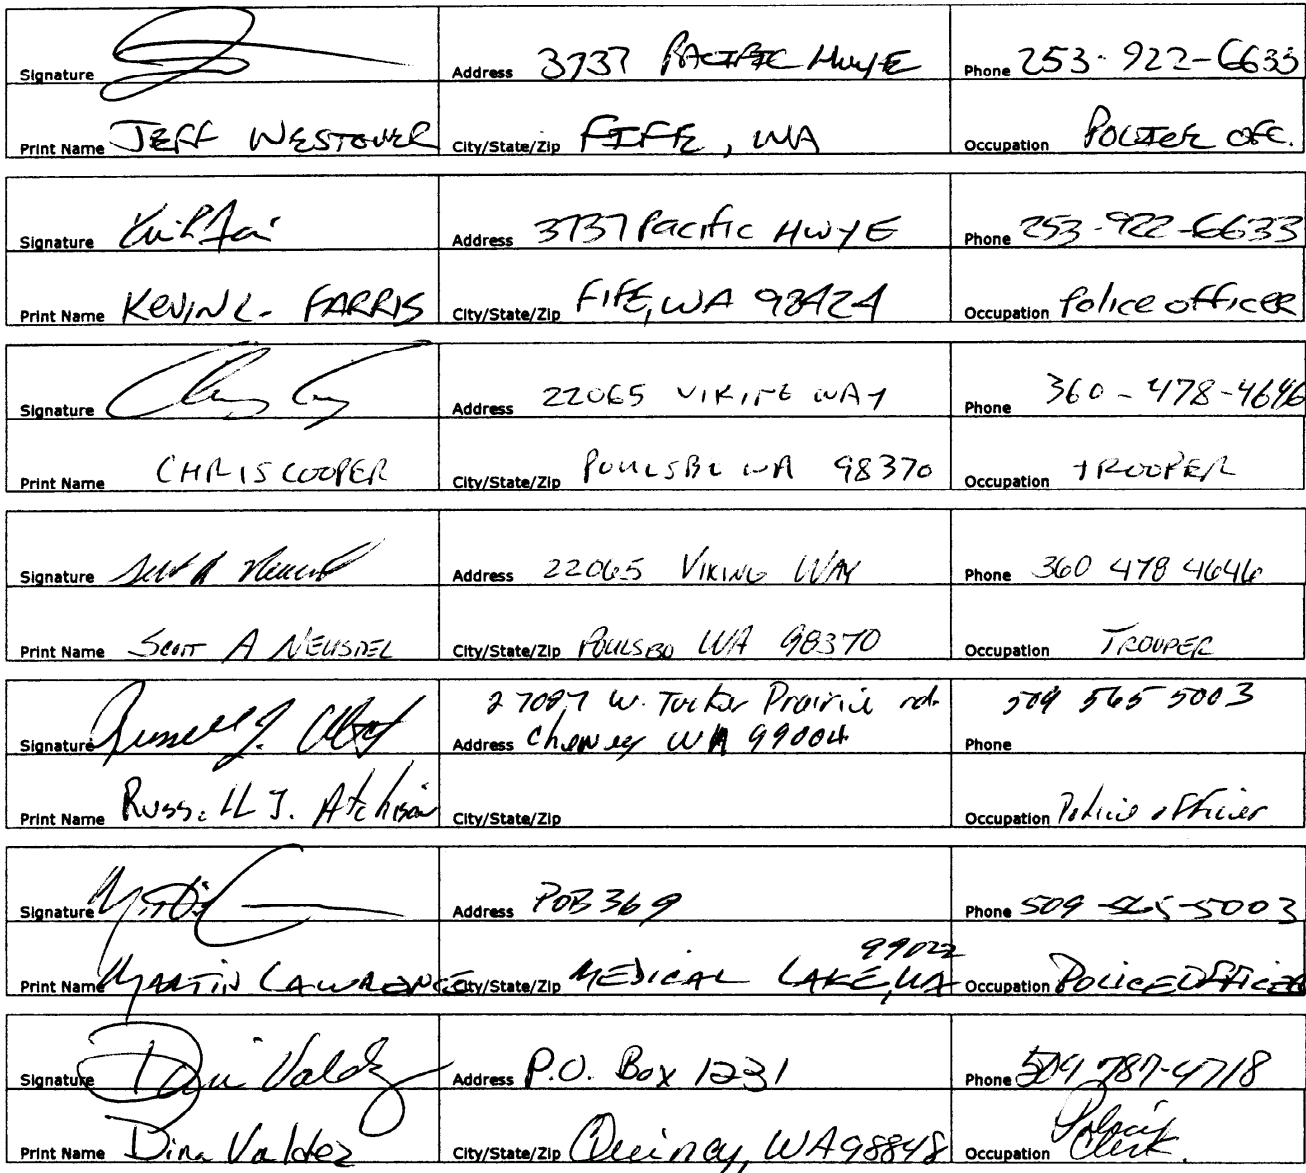 Signature Address 3737 PACIFIC Hwy E Phone 253-922-6633
Print Name JEFF WESTOVER City/State/Zip FIFE, WA Occupation POLICE OFC.
Signature Address 3737 Pacific Hwy E Phone 253-922-6633
Print Name KEVIN L. FARRIS City/State/Zip FIFE, WA 98424 Occupation Police officer
Signature Address 22065 VIKING WAY Phone 360-478-4646
Print Name CHRIS COOPER City/State/Zip POULSBO WA 98370 Occupation TROOPER
Signature Address 22065 VIKING WAY Phone 360 478 4646
Print Name SCOTT A City/State/Zip POULSBO WA 98370 Occupation TROOPER
27097 W. Tucker Prairie rd. 509 565 5003
Signature Address Cheney WA 99004 Phone
Print Name Russell J. Atchison City/State/Zip Occupation Police officer
Signature Address POB 369 Phone 509-565-5003
99022
Print Name MARTIN LAWRENCE City/State/Zip MEDICAL LAKE, WA Occupation POLICE OFFICER
Signature Dina Valdez Address P.O. Box 1231 Phone 509 787-4718
Print Name Dina Valdez City/State/Zip Quincy, WA 98848 Occupation Police Clerk